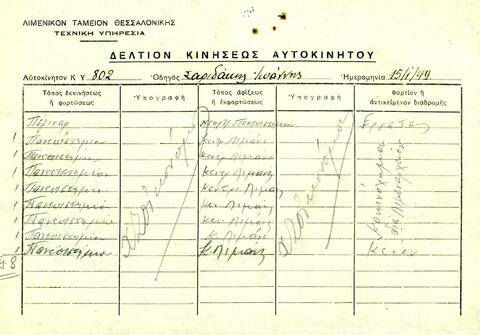 ΛΙΜΕΝΙΚΟΝ ΤΑΜΕΙΟΝ ΘΕΣΣΑΛΟΝΙΚΗΣ
ΤΕΧΝΙΚΗ ΥΠΗΡΕΣΙΑ
ΔΕΛΤΙΟΝ ΚΙΝΗΣΕΩΣ ΑΥΤΟΚΙΝΗΤΟΥ
Αὐτοκίνητον Κ Υ 802 Ὁδηγός Σαριδάκης Ἰωάννης Ἡμερομηνία 15/1/49
Τόπος ἐκκινήσεως ἢ φορτώσεως Ὑπογραφή Τόπος ἀφίξεως ἢ ἐκφορτώσεως Ὑπογραφή Φορτίον ἢ ἀντικείμενον διαδρομῆς
Πανεπιστημίου Εργάτας
Πανεπιστήμιον Κεντ. Λιμάνι
Πανεπιστήμιον Κεντρ. Λιμάνι
Πανεπιστήμιον Κεντρ. Λιμάνι
Πανεπιστήμιον Κεντρ. Λιμάνι
Πανεπιστήμιον Κεν. Λιμάνι
Πανεπιστήμιον Κεν. Λιμάνι
Πανεπιστήμιον Κ. Λιμάνι
Πανεπιστήμιον Κ. Λιμάνι Κενόν
8